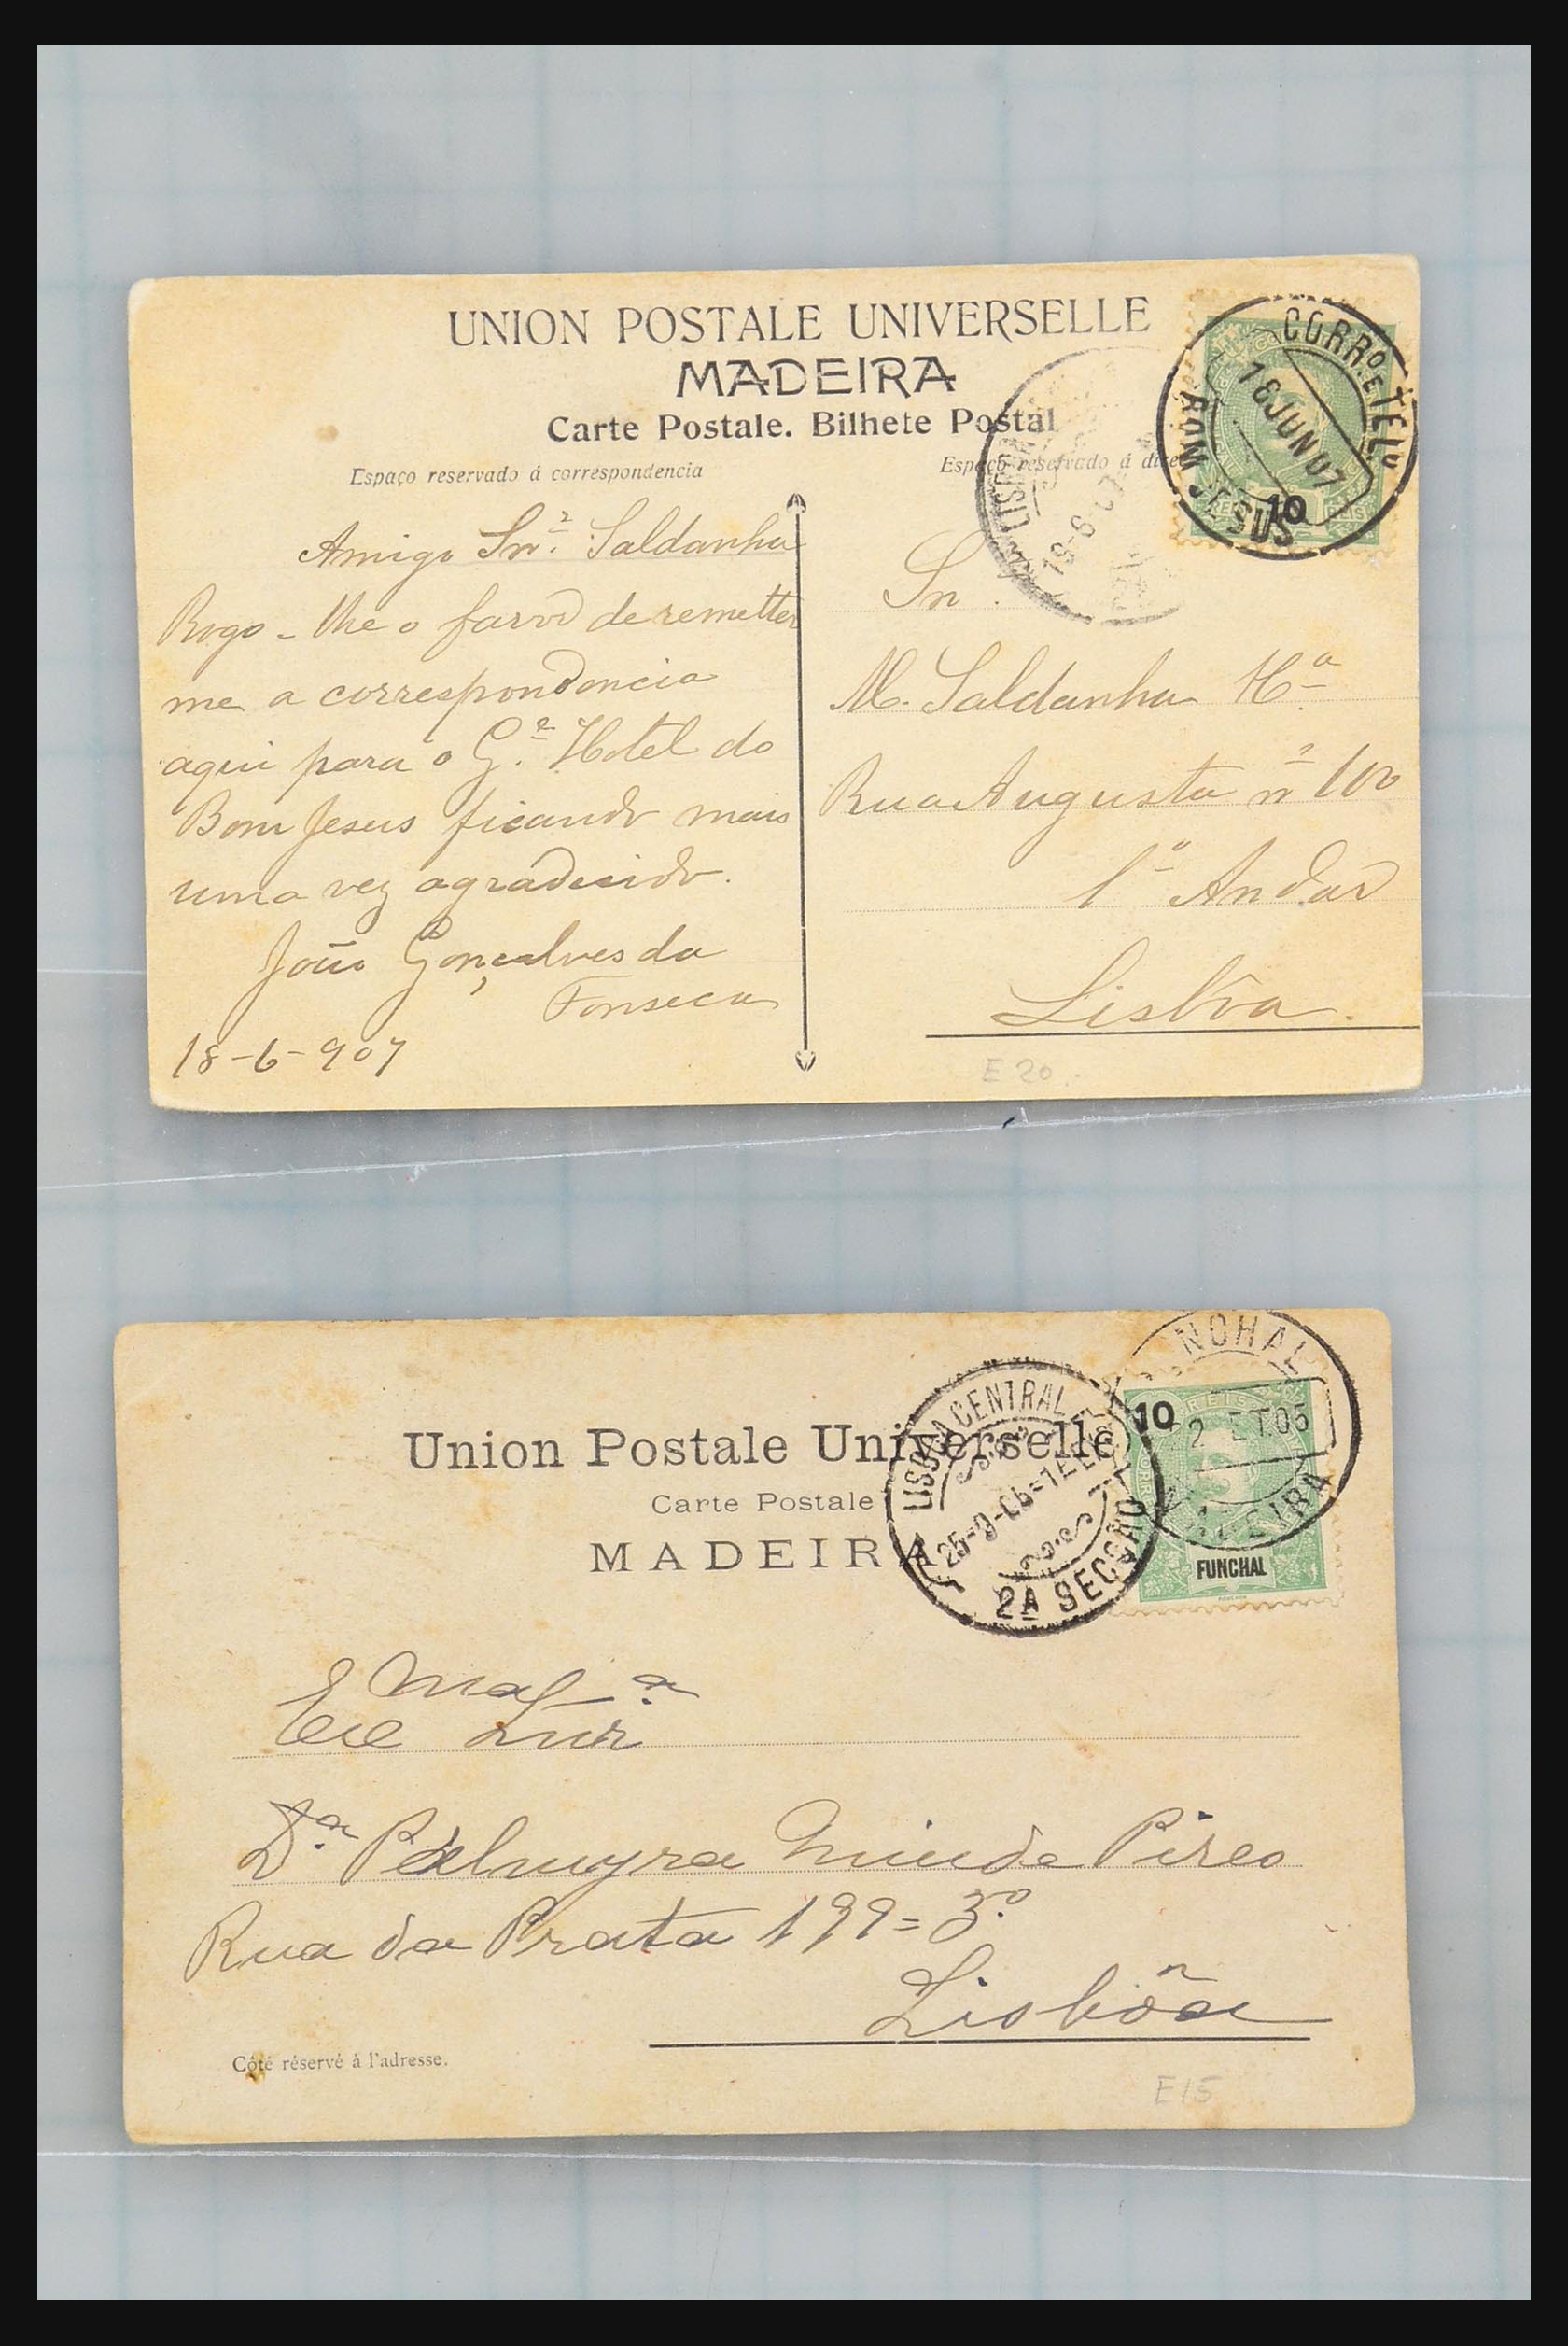 UNION POSTALE UNIVERSELLE
MADEIRA
Carte Postale. Bilhete Postal
Espaço reservado á correspondencia
Espaço reservado á dire
CORRO. E TELO
18 JUN 07
BOM JESUS
10
LISBOA
Amigo Snr. Saldanha
Rogo-lhe o favor de remetter
me a correspondencia
aqui para o Gde. Hotel do
Bom Jesus ficando mais
uma vez agradecido.
João Gonçalves da
Fonseca
18-6-907
Sn.
M. Saldanha Ha.
Rua Augusta nº 100
1º Andar
Lisboa.
E 20
Union Postale Universelle
Carte Postale
MADEIRA
LISBOA CENTRAL
25-9-05
2A SECCÃO
NCHAL
2 ET 05
10
REIS
FUNCHAL
Ema. Sra.
Exc
Da. Palmyra Pires
Rua da Prata 199=3º
Lisbôa
Côté réservé à l'adresse.
E15